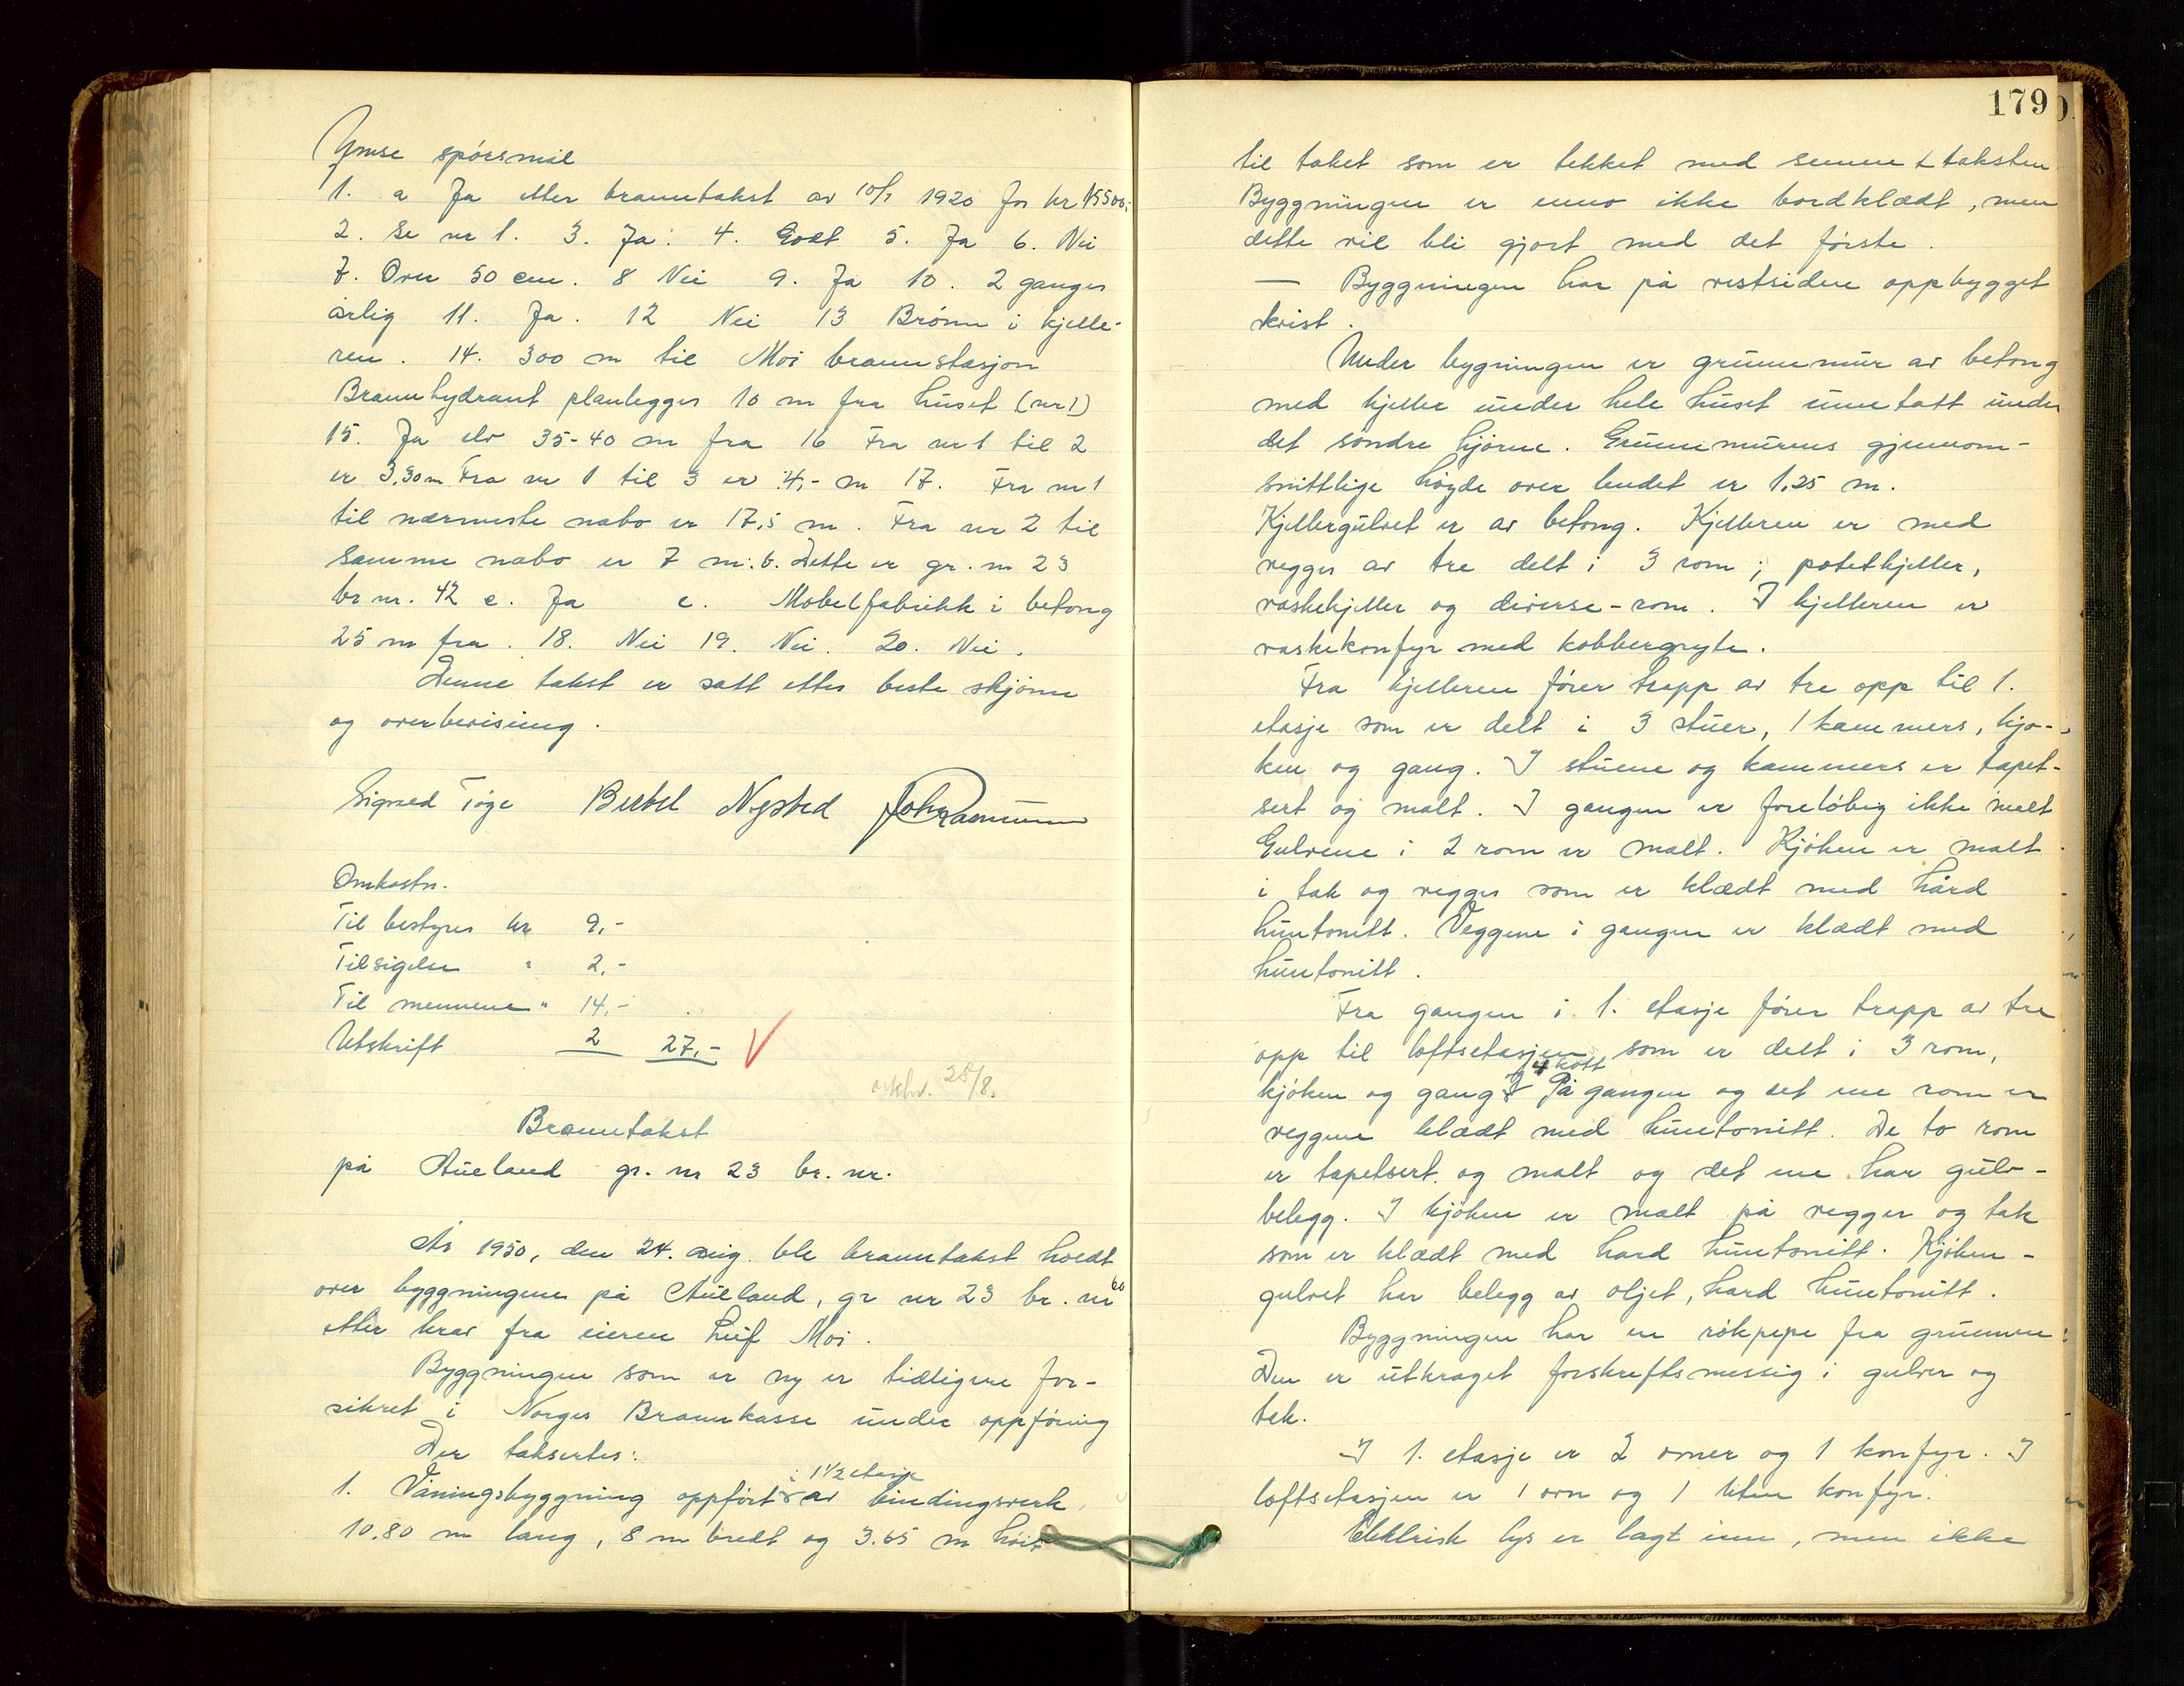 Ymse spørsmål
1. a Ja etter branntakst av 10/7 1920 for kr 15500,-
2. Se nr 1. 3. Ja. 4. Godt 5. Ja 6. Nei
7. Over 50 cm. 8 Nei 9. Ja 10. 2 ganger
årlig 11. Ja. 12 Nei 13 Brønn i kjelle-
ren. 14. 300 m til Moi brannstasjon
Brannhydrant planlegges 10 m fra huset (nr 1)
15. Ja elv 35-40 m fra 16 Fra nr 1 til 2
er 3,30 m Fra nr 1 til 3 er 4,- m 17. Fra nr 1
til nærmeste nabo er 17,5 m. Fra nr 2 til
samme nabo er 7 m. b. Dette er gr. nr 23
br nr. 42 c. Ja e. Møbelfabrikk i betong
25 m fra. 18. Nei 19. Nei. 20. Nei.
Denne takst er satt etter beste skjønn
og overbevisning.
Sigved Tøge Bertel Nysted John Rasmussen
Omkostn.
Til bestyrer kr 9,-
Tilsigelse " 2,-
Til mennene " 14,-
Utskrift 2 27,- V
utskr. 28/8.
Branntakst
på Aueland gr. nr 23 br. nr.
År 1950, den 24. aug. ble branntakst holdt
over byggningene på Aueland, gr nr 23 br. nr
etter krav fra eieren Leif Moi.
Byggningen som er ny er tidligere for-
sikret i Norges Brannkasse under oppføring
Der taksertes:
i 1 1/2 etasje
1. Våningsbyggning oppført av bindingsverk,
10.80 m lang, 8 m bredt og 3.65 m høit
179
til taket som er tekket med sement taksten.
Byggningen er enno ikke bordklædt, men
dette vil bli gjort med det første.
— Byggningen har på vestsiden oppbygget
kvist.
Under bygningen er grunnmur av betong
med kjeller under hele huset unntatt under
det søndre hjørne. Grunnmurens gjennom-
snittlige høyde over lendet er 1,25 m.
Kjellergulvet er av betong. Kjelleren er med
vegger av tre delt i 3 rom; potetkjeller,
vaskekjeller og diverse-rom. I kjelleren er
vaskekomfyr med kobbergryte.
Fra kjelleren fører trapp av tre opp til 1.
etasje som er delt i 3 stuer, 1 kammers, kjø-
ken og gang. I stuene og kammers er tapet-
sert og malt. I gangen er foreløbig ikke malt
Gulvene i 2 rom er malt. Kjøken er malt
i tak og vegger som er klædt med hård
huntonitt. Veggene i gangen er klædt med
huntonitt.
Fra gangen i 1. etasje fører trapp av tre
opp til loftsetasjen som er delt i 3 rom,
4 kott
kjøken og gang. På gangen og det ene rom er
veggene klædt med huntonitt. De to rom
er tapetsert og malt og det ene har gulv-
belegg. I kjøken er malt på vegger og tak
som er klædt med hard huntonitt. Kjøken-
gulvet har belegg av oljet, hard huntonitt.
Byggningen har en rökpipe fra grunnen.
Den er utkraget forskriftsmessig i gulver og
tak.
I 1. etasje er 2 omer og 1 komfyr. I
loftsetasjen er 1 ovn og 1 liten komfyr.
Elektrisk lys er lagt inn, men ikke